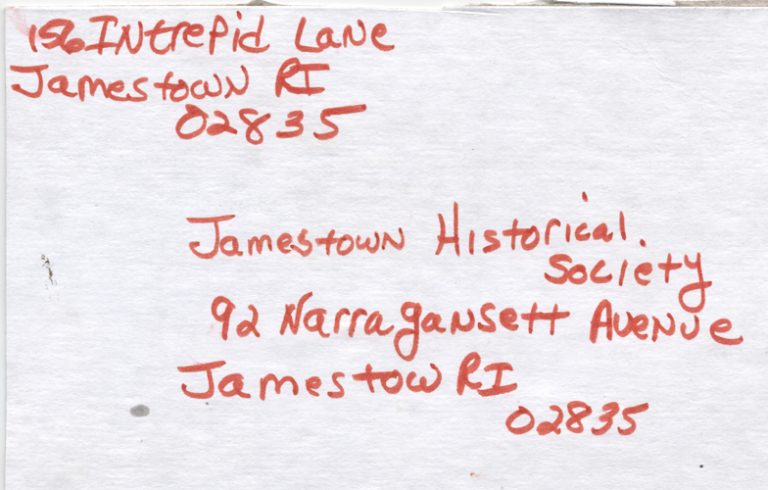 156 Intrepid Lane
Jamestown RI
02835
Jamestown Historical.
Society
92 Narragansett Avenue
Jamestow RI
02835